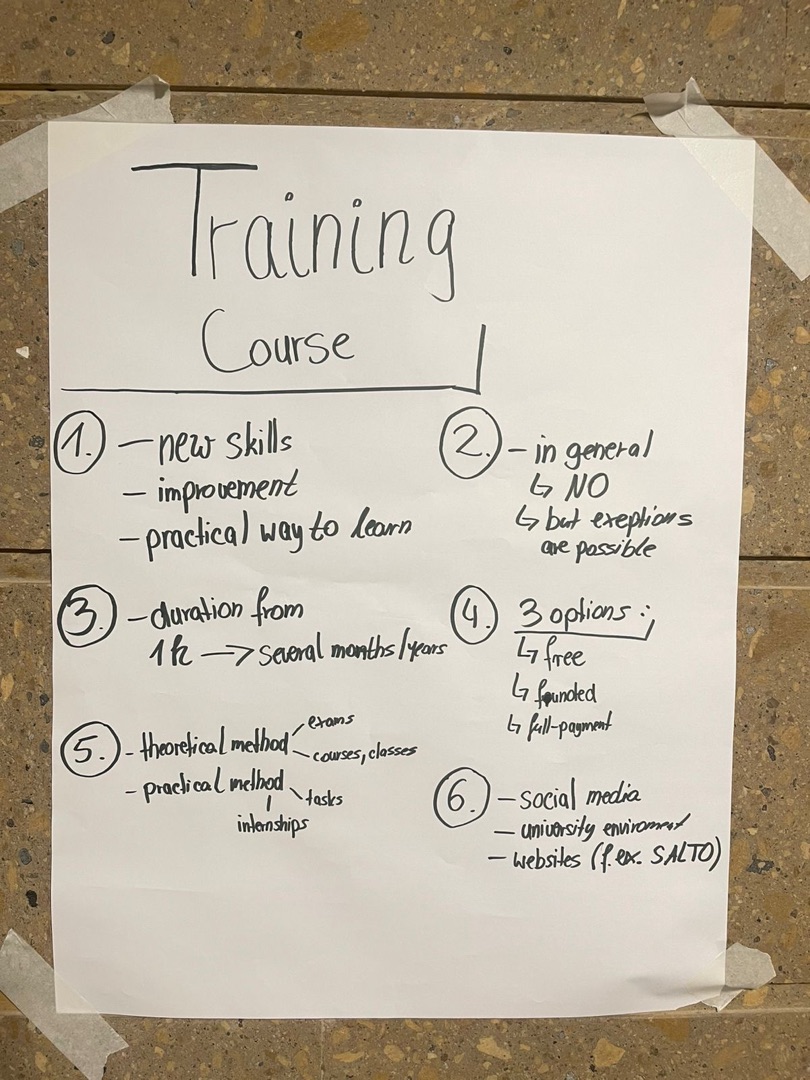 Training
Course
1. – new skills
– improvement
– practical way to learn
2. – in general
↳ NO
↳ but exeptions
are possible
3. – duration from
1h → several months/years
4. 3 options:
↳ free
↳ founded
↳ full-payment
5. – theoretical method
exams
courses, classes
– practical method
tasks
internships
6. – social media
– university enviroment
– websites (f.ex. SALTO)